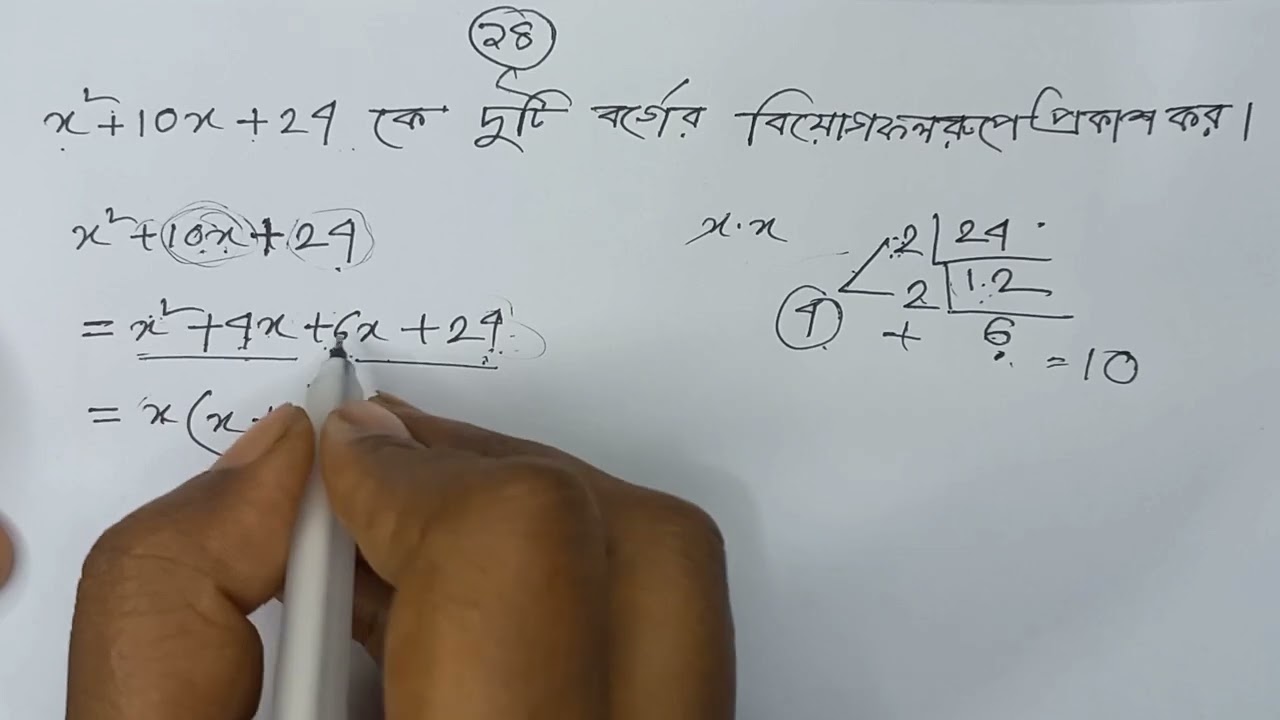 ২৪
x²+10x+24 কে দুটি বর্গের বিয়োগফলরুপে প্রকাশ কর।
x²+10x+24
= x²+4x+6x+24
= x(x+
x.x
2 24
2 12
4 + 6 = 10